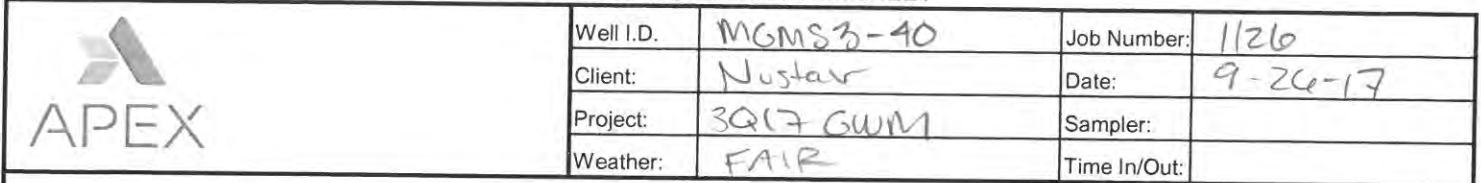 Well I.D. MGMS3-40 Job Number: 1126
Client: Nustar Date: 9-26-17
APEX
Project: 3Q17 GWM Sampler:
Weather: FAIR Time In/Out: